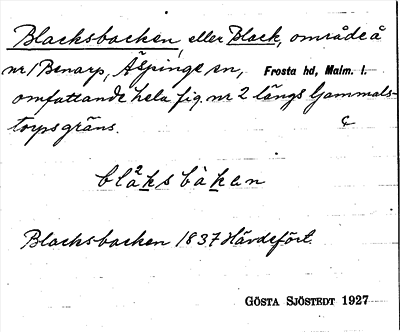 Blacksbacken, eller Black, område å
nr 1 Benarp, Äspinge sn, Frosta hd, Malm. l.
omfattande hela fig. nr 2 längs Gammals-
torps gräns. c
blɑ̊²ksbàkan
Blacksbacken 1837 Häradsfört.
GÖSTA SJÖSTEDT 1927